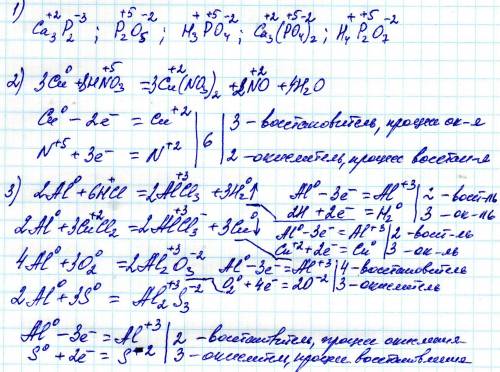 1) Ca₃⁺²P₂⁻³ ; P₂⁺⁵O₅⁻² ; H₃⁺P⁺⁵O₄⁻² ; Ca₃⁺²(P⁺⁵O₄⁻²)₂ ; H₄⁺P₂⁺⁵O₇⁻²
2) 3Cu⁰ + 8HN⁺⁵O₃ = 3Cu⁺²(NO₃)₂ + 2N⁺²O + 4H₂O
Cu⁰ – 2e⁻ = Cu⁺² | 6 | 3 – восстановитель, процесс ок-я
N⁺⁵ + 3e⁻ = N⁺² | 2 – окислитель, процесс восстан-я
3) 2Al⁰ + 6H⁺Cl = 2Al⁺³Cl₃ + 3H₂⁰↑
Al⁰ – 3e⁻ = Al⁺³ | 2 – вост-ль
2H + 2e⁻ = H₂⁰ | 3 – ок-ль
2Al⁰ + 3Cu⁺²Cl₂ = 2Al⁺³Cl₃⁻ + 3Cu⁰↓
Al⁰ – 3e⁻ = Al⁺³ | 2 – вост-ль
Cu⁺² + 2e⁻ = Cu⁰ | 3 – ок-ль
4Al⁰ + 3O₂⁰ = 2Al₂⁺³O₃⁻²
Al⁰ – 3e⁻ = Al⁺³ | 4 – восстановитель
O₂⁰ + 4e⁻ = 2O⁻² | 3 – окислитель
2Al⁰ + 3S⁰ = Al₂⁺³S₃⁻²
Al⁰ – 3e⁻ = Al⁺³ | 2 – восстановитель, процесс окисления
S⁰ + 2e⁻ = S⁻² | 3 – окислитель, процесс восстановления